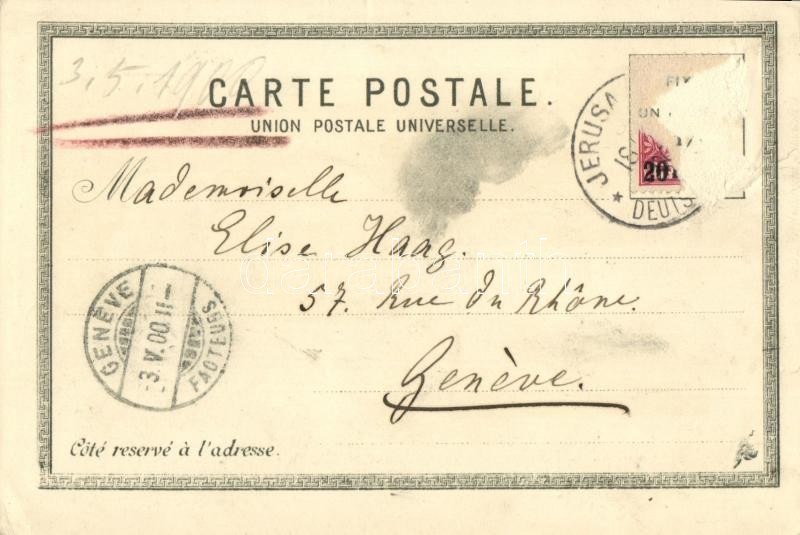 3.5.1900
CARTE POSTALE.
UNION POSTALE UNIVERSELLE.
JERUSA
DEUTS
20
Mademoiselle
Elise Haag.
57. Rue du Rhône.
Genève.
GENÈVE
-3.V.00.11-
FACTEURS
Côté reservé à l'adresse.